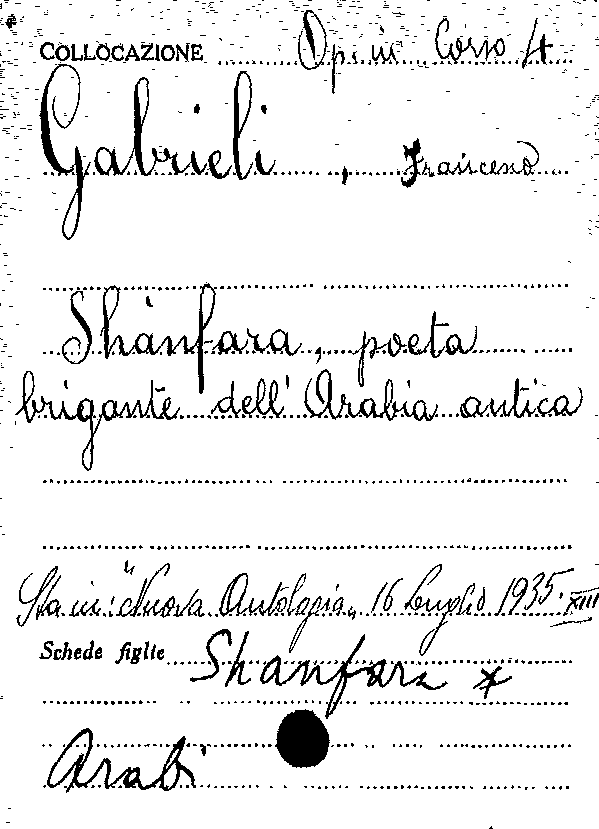 COLLOCAZIONE Op. in Corso 4
Gabrieli, Francesco
Shànfara, poeta
brigante dell'Arabia antica
Sta in: "Nuova Antologia" 16 Luglio 1935. XIII
Schede figlie Shanfara *
Arabi